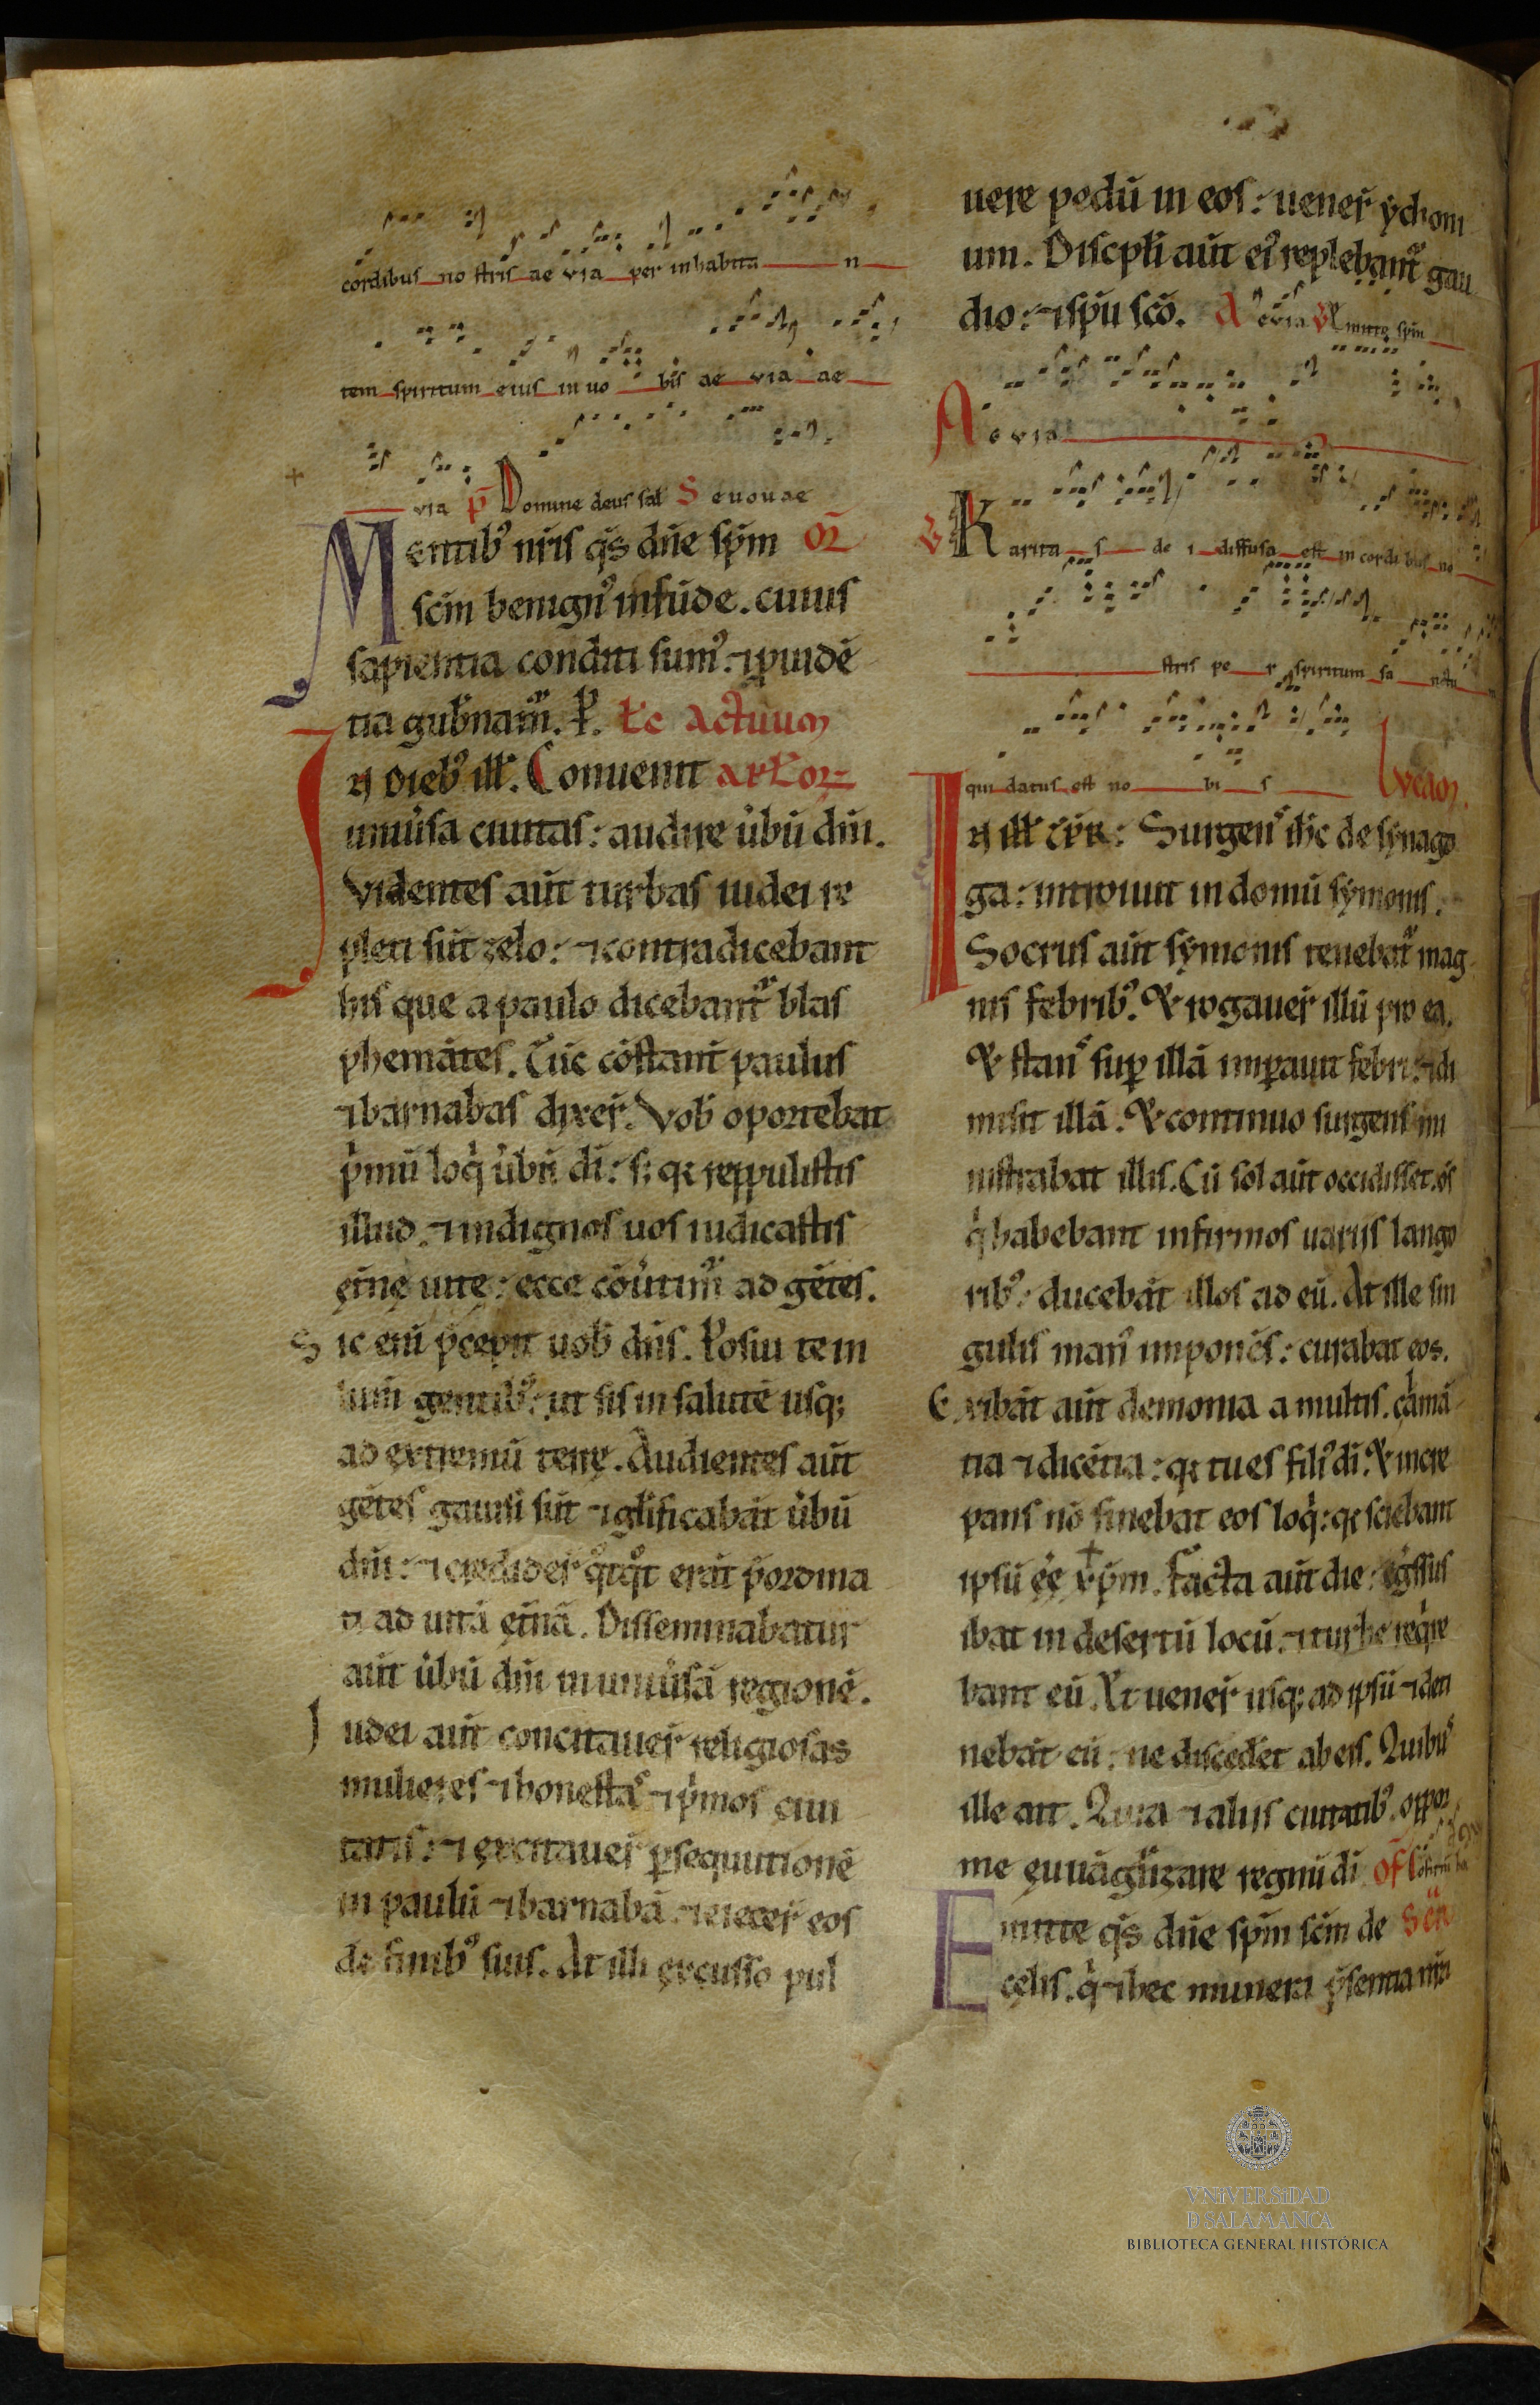 cordibus no stris ae via per inhabita n
tem spiritum eius in uo bis ae via ae
via p̄ Domine deus sal S euouae
Mentib⁹ nr̄is q̄s dn̄e sp̄m or̄
sc̄m benign⁹ infūde. cuius
sapientia conditi sum⁹. ⁊ ꝓuidē
tia gub̄namur. P. Lc̄ Actuum
IN dieb⁹ ill̄. Conuenit apl̄or
uniu̓sa ciuitas: audire u̓bū dn̄i.
Videntes aūt turbas iudei re
pleti sūt zelo: ⁊ contradicebant
his que a paulo dicebant᷑ blas
phemātes. Tūc cōstant̄ paulus
⁊ barnabas dixer̄. Vob̄ oportebat
p̓mū loq̓ u̓bū di: s; qr reppulistis
illud. ⁊ indignos uos iudicastis
et̄nę uitę: ecce cōu̓tim᷑ ad gētes.
Sic eni p̄cepit uob̄ dn̄s. Posui te in
lum̄ gentib⁹: ut sis in salutē usq;
ad extremū terrę. Audientes aūt
gētes gauisi sūt ⁊ gl̄ificabāt u̓bū
dn̄i: ⁊ credider̄ qͦtqͦt erāt p̄ordina
ti ad uitā et̄nā. Disseminabatur
aūt u̓bū dn̄i in uniu̓sā regionē.
Iudei aūt concitauer̄ religiosas
mulieres ⁊ honestas ⁊ p̓mos ciui
tatis: ⁊ excitauer̄ ꝑsequutionē
in paulū ⁊ barnabā. ⁊ eiecer̄ eos
de finib⁹ suis. At illi excusso pul
uere pedū in eos: uener̄ ychoni
um. Discipl̄i aūt ei⁹ replebant᷑ gau
dio: ⁊ sp̄u sc̄o. A evia V Emitte sp̄m
A evia
V Karita s de i diffusa est in cordi bus no
stris pe r spiritum sa nctu
qui datus est no bi s Lucam.
IN ill̄ tp̄r: Surgens ih̄c de synago
ga: introiuit in domū symonis.
Socrus aūt symonis tenebat᷑ mag
nis febrib⁹. & rogauer̄ illū pro ea.
& stans suꝑ illā imꝑauit febri: ⁊ di
misit illā. & continuo surgens mi
nistrabat illis. Cū sol aūt occidisset. oēs
q̓ habebant infirmos uariis lango
rib⁹: ducebāt illos ad eū. At ille sin
gulis man⁹ imponēs: curabat eos.
Exibāt aūt demonia a multis. clamā
tia ⁊ dicētia: qr tu es fili⁹ di. & incre
pans nō sinebat eos loq̓: qr sciebant
ipsū ēē xp̄m. Facta aūt die: eg̓ssus
ibat in desertū locū. ⁊ turbe req̓re
bant eū. Et uener̄ usq; ad ipsū ⁊ deti
nebāt eū: ne disceder̄et ab eis. Quibus
ille ait. Quia ⁊ aliis ciuitatib⁹. oppor
me euuāgl̄izare regnū di of̄ Confirma
Emitte q̄s dn̄e sp̄m sc̄m de Scr̄
cęlis. q̓ ⁊ hec munera p̄sentia nr̄a
VNIVERSIDAD
D SALAMANCA
BIBLIOTECA GENERAL HISTÓRICA